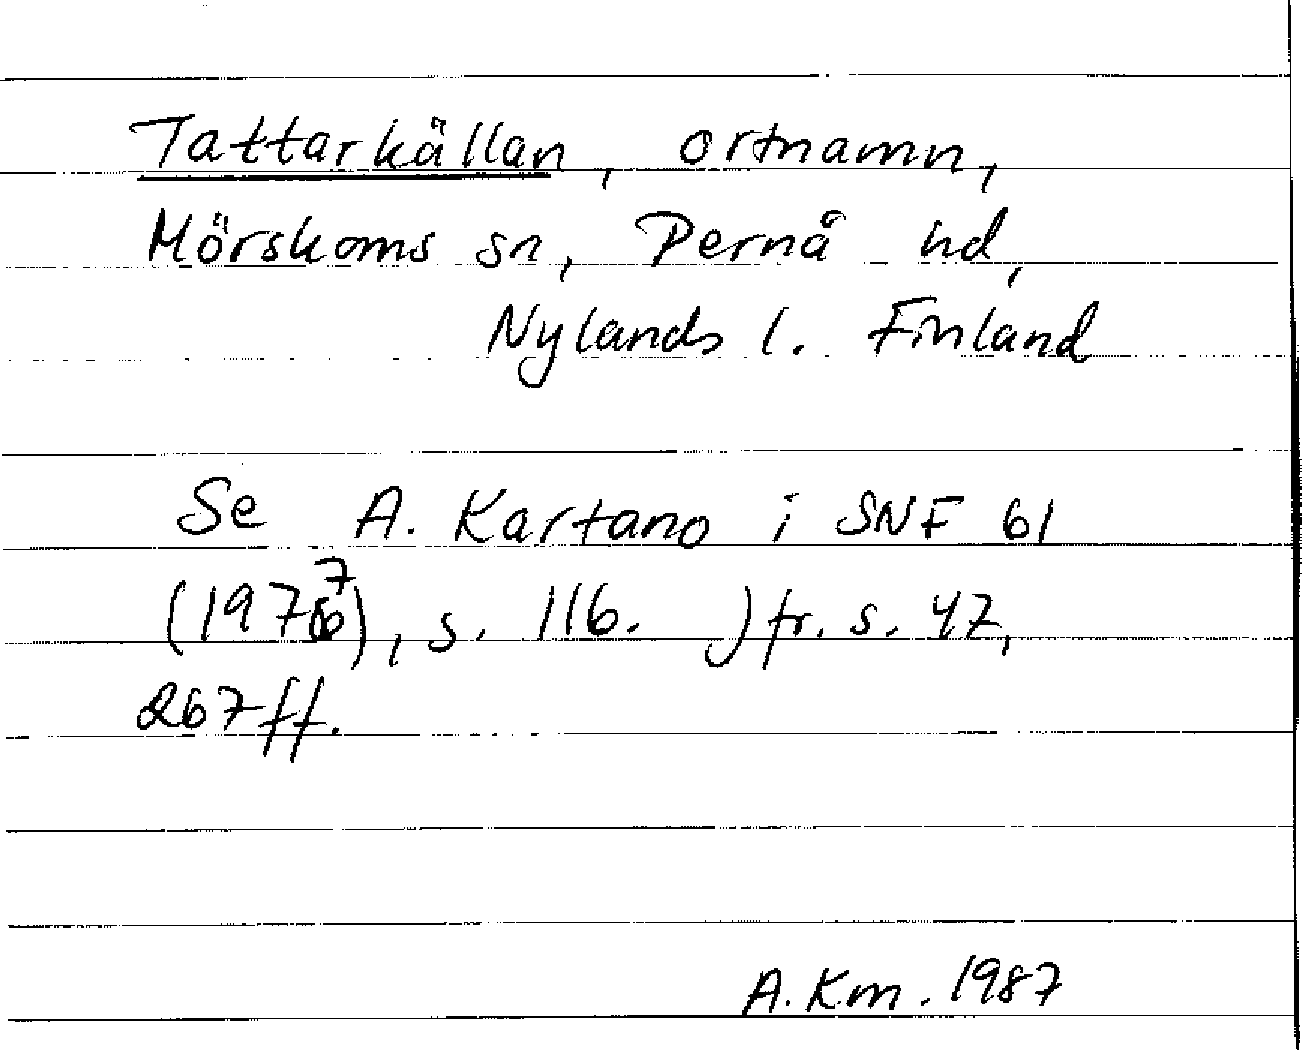 Tattarkällan, ortnamn,
Mörskoms sn, Pernå hd,
Nylands l. Finland
Se A. Kartano i SNF 61
(1977), s. 116. Jfr. s. 47,
267 ff.
A. Km. 1987